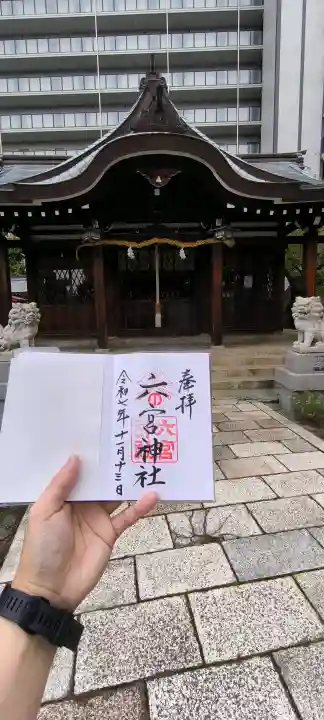 奉拝
六宮神社
六宮
令和七年十一月十三日